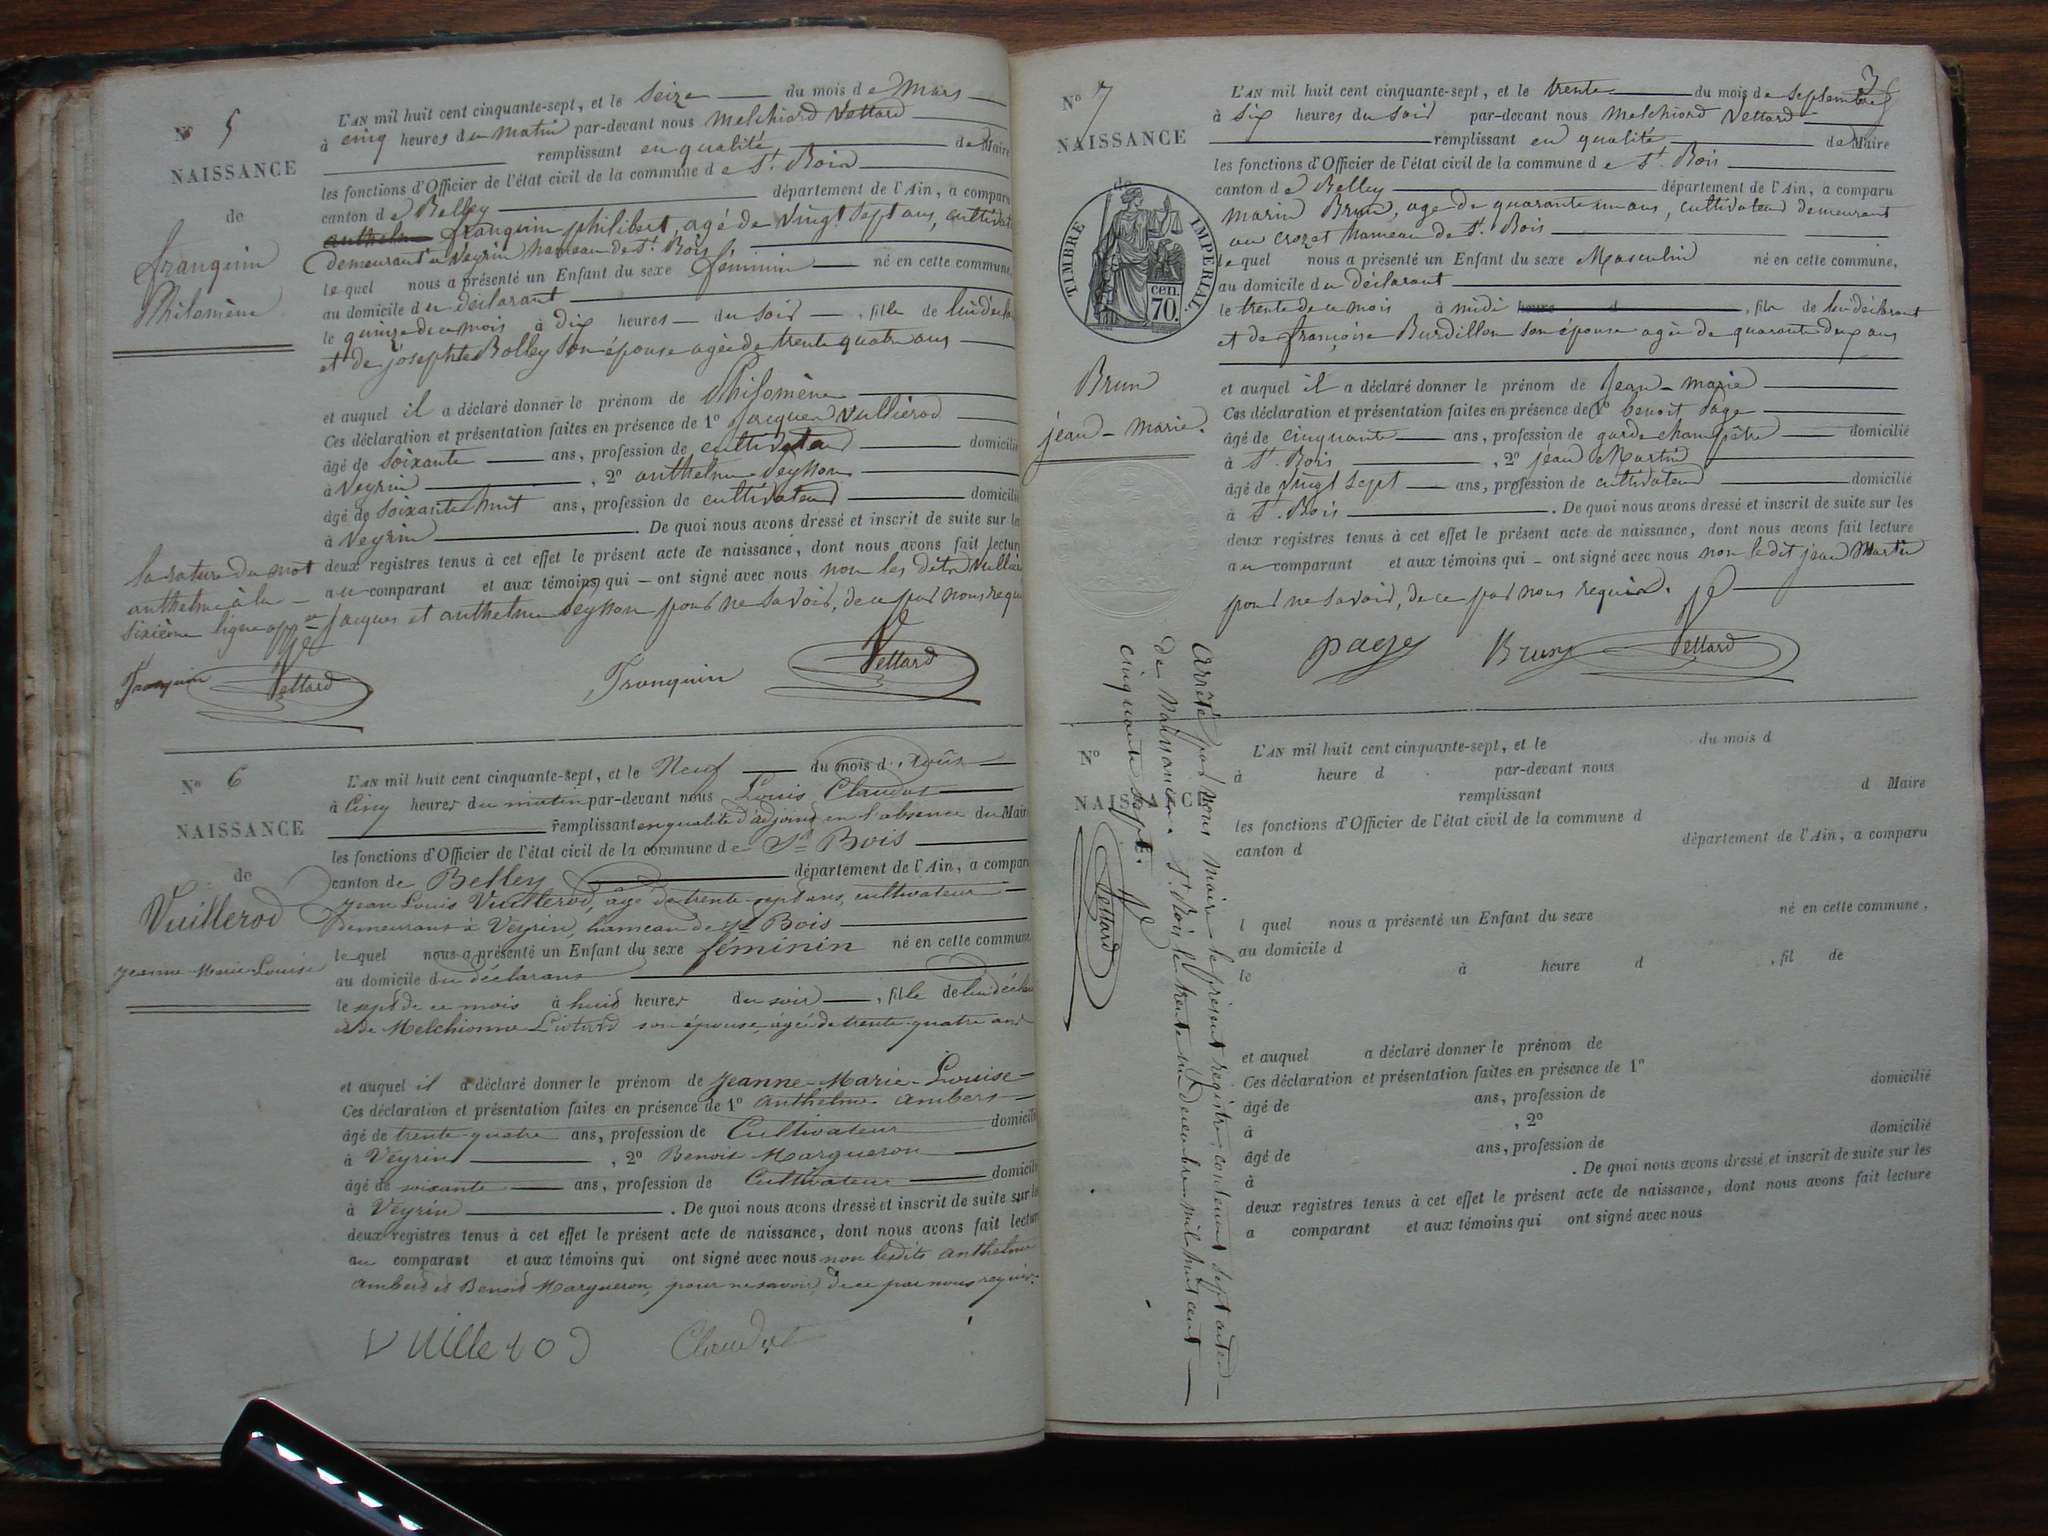 N° 5
NAISSANCE
de
franquin
Philomène
L'AN mil huit cent cinquante-sept, et le seize du mois de Mars
à cinq heures du matin par-devant nous Melchiord Vettard
remplissant en qualité de Maire
les fonctions d'Officier de l'état civil de la commune de St. Bois
canton de Belley département de l'Ain, a comparu
anthelme franquin philibert, agé de vingt sept ans, cultivat
demeurant a Veyrin hameau de St. Bois
lequel nous a présenté un Enfant du sexe féminin né en cette commune,
au domicile du déclarant
le quinze de ce mois à dix heures du soir , fille de lui décla
et de josephte Bolley son épouse agée de trente quatre ans
et auquel il a déclaré donner le prénom de Philomène
Ces déclaration et présentation faites en présence de 1° jacques Vulliérod
âgé de soixante ans, profession de cultivateur domicilié
à Veyrin , 2° anthelme Seysson
âgé de soixante huit ans, profession de cultivateur domicilié
à Veyrin . De quoi nous avons dressé et inscrit de suite sur les
deux registres tenus à cet effet le présent acte de naissance, dont nous avons fait lecture
au comparant et aux témoins qui - ont signé avec nous non les dits Vullié
jacques et anthelme Seysson pour ne savoir, de ce par nous requi
la rature du mot
anthelme à la
sixième ligne app
Franquin Vettard
Franquin Vettard
N° 6
NAISSANCE
de
Vuillerod
Jeanne-Marie-Louise
L'AN mil huit cent cinquante-sept, et le Neuf du mois d'Août
à Cinq heures du matin par-devant nous Louis Claudot
remplissant en qualité d'adjoint en l'absence du Maire
les fonctions d'Officier de l'état civil de la commune de St Bois
canton de Belley département de l'Ain, a comparu
Jean Louis Vuillerod, âgé de trente-sept ans, cultivateur
Demeurant à Veyrin, hameau de St Bois
lequel nous a présenté un Enfant du sexe féminin né en cette commune
au domicile du déclarant
le sept de ce mois à huit heures du soir , fille de lui décla
et de Melchionne Liotard son épouse, âgée de trente-quatre ans
et auquel il a déclaré donner le prénom de Jeanne-Marie-Louise
Ces déclaration et présentation faites en présence de 1° Anthelme Ambert
âgé de trente-quatre ans, profession de Cultivateur domicilié
à Veyrin , 2° Benoit Margueron
âgé de soixante ans, profession de Cultivateur domicilié
à Veyrin . De quoi nous avons dressé et inscrit de suite sur les
deux registres tenus à cet effet le présent acte de naissance, dont nous avons fait lecture
au comparant et aux témoins qui ont signé avec nous non lesdits Anthelme
Ambert et Benoit Margueron, pour ne savoir, de ce par nous requis.
Vuillerod Claudot
3
N° 7
NAISSANCE
de
TIMBRE IMPERIAL
70 cen.
Brun
jean-marie.
L'AN mil huit cent cinquante-sept, et le trente du mois de septembre
à six heures du soir par-devant nous Melchiord Vettard
remplissant en qualité de Maire
les fonctions d'Officier de l'état civil de la commune de St. Bois
canton de Belley département de l'Ain, a comparu
Marin Brun, agé de quarante un ans, cultivateur demeurant
au crozet hameau de St. Bois
lequel nous a présenté un Enfant du sexe Masculin né en cette commune,
au domicile du déclarant
le trente de ce mois à midi heure d , fils de lui déclarant
et de françoise Burdillon son épouse agée de quarante deux ans
et auquel il a déclaré donner le prénom de jean-marie
Ces déclaration et présentation faites en présence de 1° benoit Page
âgé de cinquante ans, profession de garde champêtre domicilié
à St. Bois , 2° jean Martin
âgé de vingt sept ans, profession de cultivateur domicilié
à St. Bois . De quoi nous avons dressé et inscrit de suite sur les
deux registres tenus à cet effet le présent acte de naissance, dont nous avons fait lecture
au comparant et aux témoins qui - ont signé avec nous non le dit jean Martin
pour ne savoir, de ce par nous requis.
page Brun Vettard
Arrêté par nous Maire le présent registre, contenant sept actes
de naissance. St. Bois le trente un décembre mil huit cent
cinquante sept.
Vettard
N°
NAISSANCE
L'AN mil huit cent cinquante-sept, et le du mois d
à heure d par-devant nous
remplissant d Maire
les fonctions d'Officier de l'état civil de la commune d
canton d département de l'Ain, a comparu
l quel nous a présenté un Enfant du sexe né en cette commune,
au domicile d
le à heure d , fil de
et auquel a déclaré donner le prénom de
Ces déclaration et présentation faites en présence de 1°
âgé de ans, profession de domicilié
à , 2°
âgé de ans, profession de domicilié
à . De quoi nous avons dressé et inscrit de suite sur les
deux registres tenus à cet effet le présent acte de naissance, dont nous avons fait lecture
a comparant et aux témoins qui ont signé avec nous